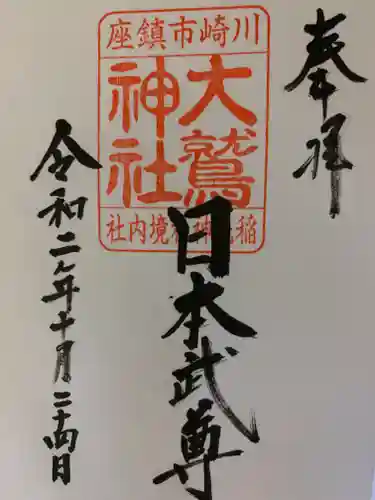 奉拝
川崎市鎮座
大鷲
神社
稲毛神社境内社
日本武尊
令和二年十月二十四日